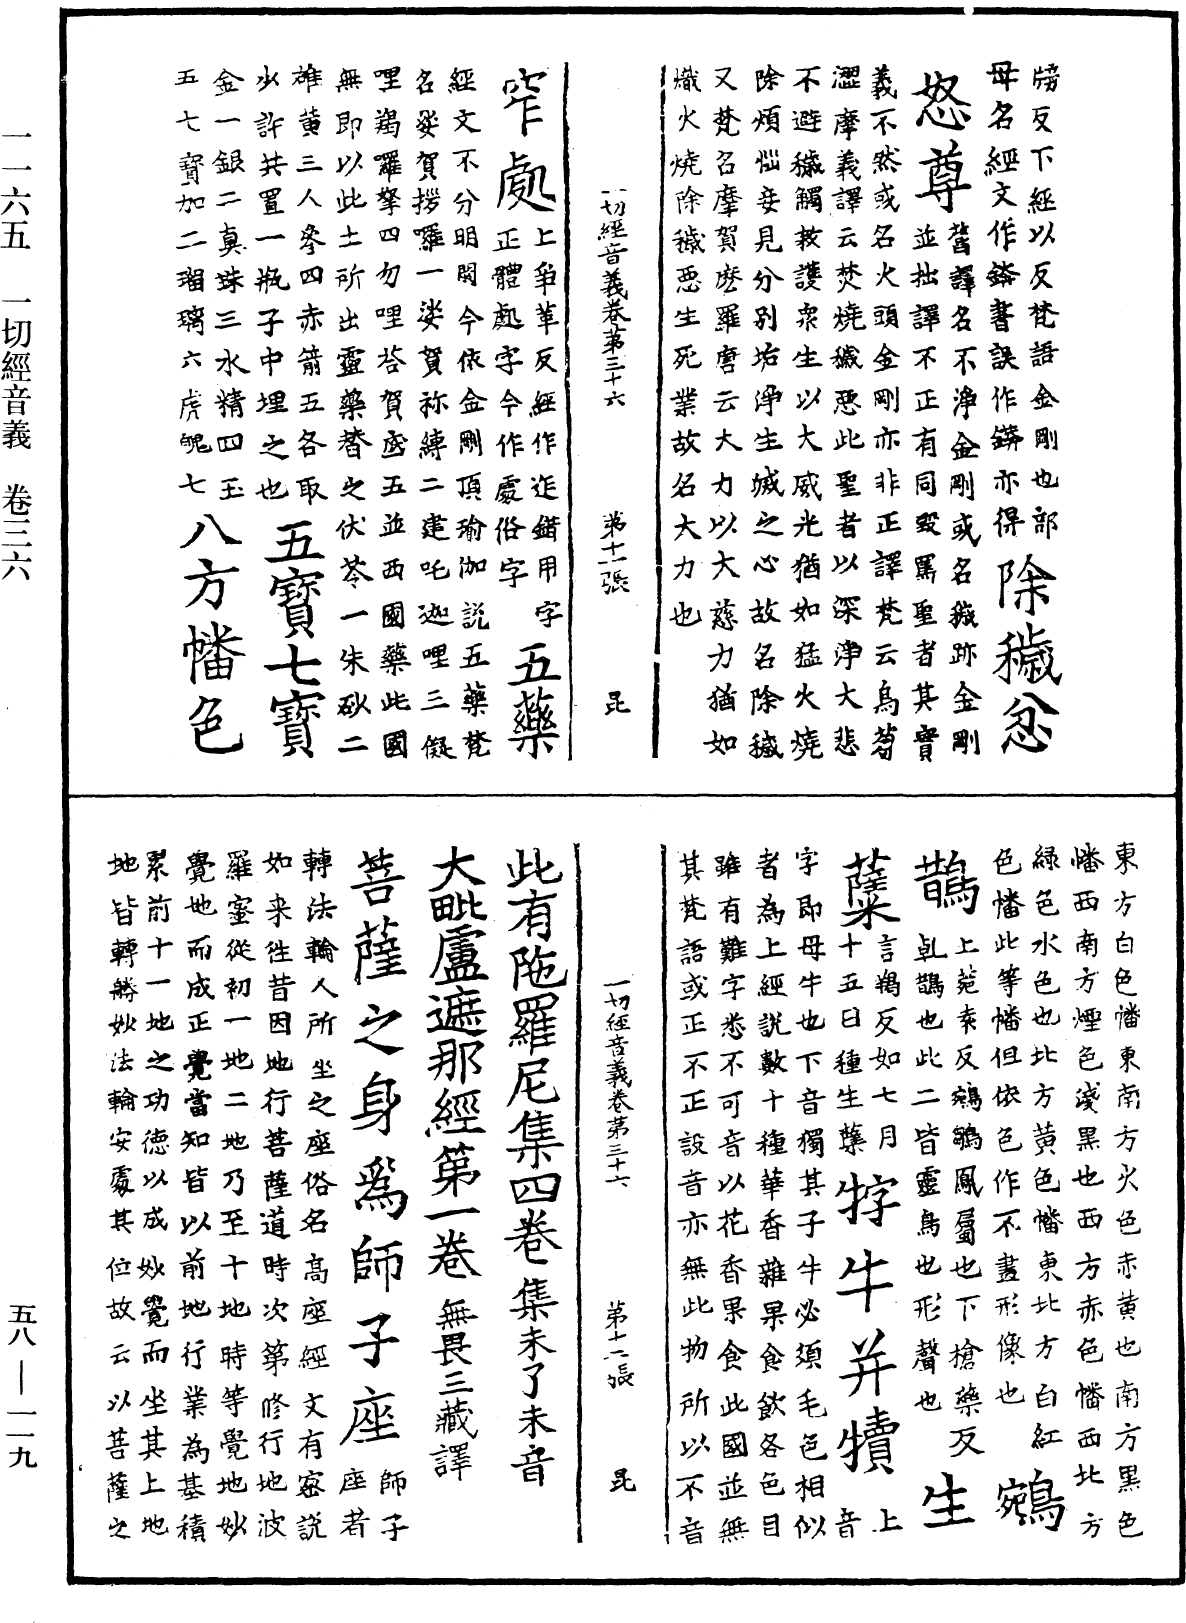 一一六五　一切經音義　卷三六
五八—一一九
牓反下經以反梵語金剛也部
母名經文作鏻書誤作鏻亦得除穢忿
怒尊舊譯名不淨金剛或名穢跡金剛
並拙譯不正有同毀罵聖者其實
義不然或名火頭金剛亦非正譯梵云烏蒭
澀摩義譯云焚燒穢惡此聖者以深淨大悲
不避穢觸救護衆生以大威光猶如猛火燒
除煩惱妄見分別垢淨生滅之心故名除穢
又梵名摩賀麽羅唐云大力以大慈力猶如
熾火燒除穢惡生死業故名大力也
一切經音義卷第三十六　第十一張　昆
窄處上爭革反經作迮錯用字
正體處字今作處俗字五藥
經文不分明闕今依金剛頂瑜伽說五藥梵
名娑賀拶囉一娑賀祢縛二建吒迦哩三儗
哩羯囉拏四勿哩荅賀底五並西國藥此國
無即以此土所出靈藥替之伏苓一朱砂二
雄黃三人參四赤箭五各取
少許共置一瓶子中埋之也五寶七寶
金一銀二真珠三水精四玉
五七寶加二瑠璃六虎魄七八方幡色
東方白色幡東南方火色赤黄也南方黑色
幡西南方煙色淺黑也西方赤色幡西北方
緑色水色也北方黄色幡東北方白紅
色幡此等幡但依色作不畫形像也鵷
鵲上菀袁反鵷鶵鳳屬也下槍藥反
乹鵲也此二皆靈鳥也形聲也生
蘖言羯反如七月
十五日種生蘖牸牛并犢上音
字即母牛也下音獨其子牛必須毛色相似
者為上經說數十種華香雜果食飲各色目
雖有難字悉不可音以花香果食此國並無
其梵語或正不正設音亦無此物所以不音
一切經音義卷第三十六　第十二張　昆
此有陁羅尼集四卷集未了未音
大毗盧遮那經第一卷無畏三藏譯
菩薩之身爲師子座師子座者
轉法輪人所坐之座俗名高座經文有密說
如來往昔因地行菩薩道時次第修行地波
羅蜜從初一地二地乃至十地時等覺地妙
覺地而成正覺當知皆以前地行業為基積
累前十一地之功德以成妙覺而坐其上地
地皆轉勝妙法輪安處其位故云以菩薩之